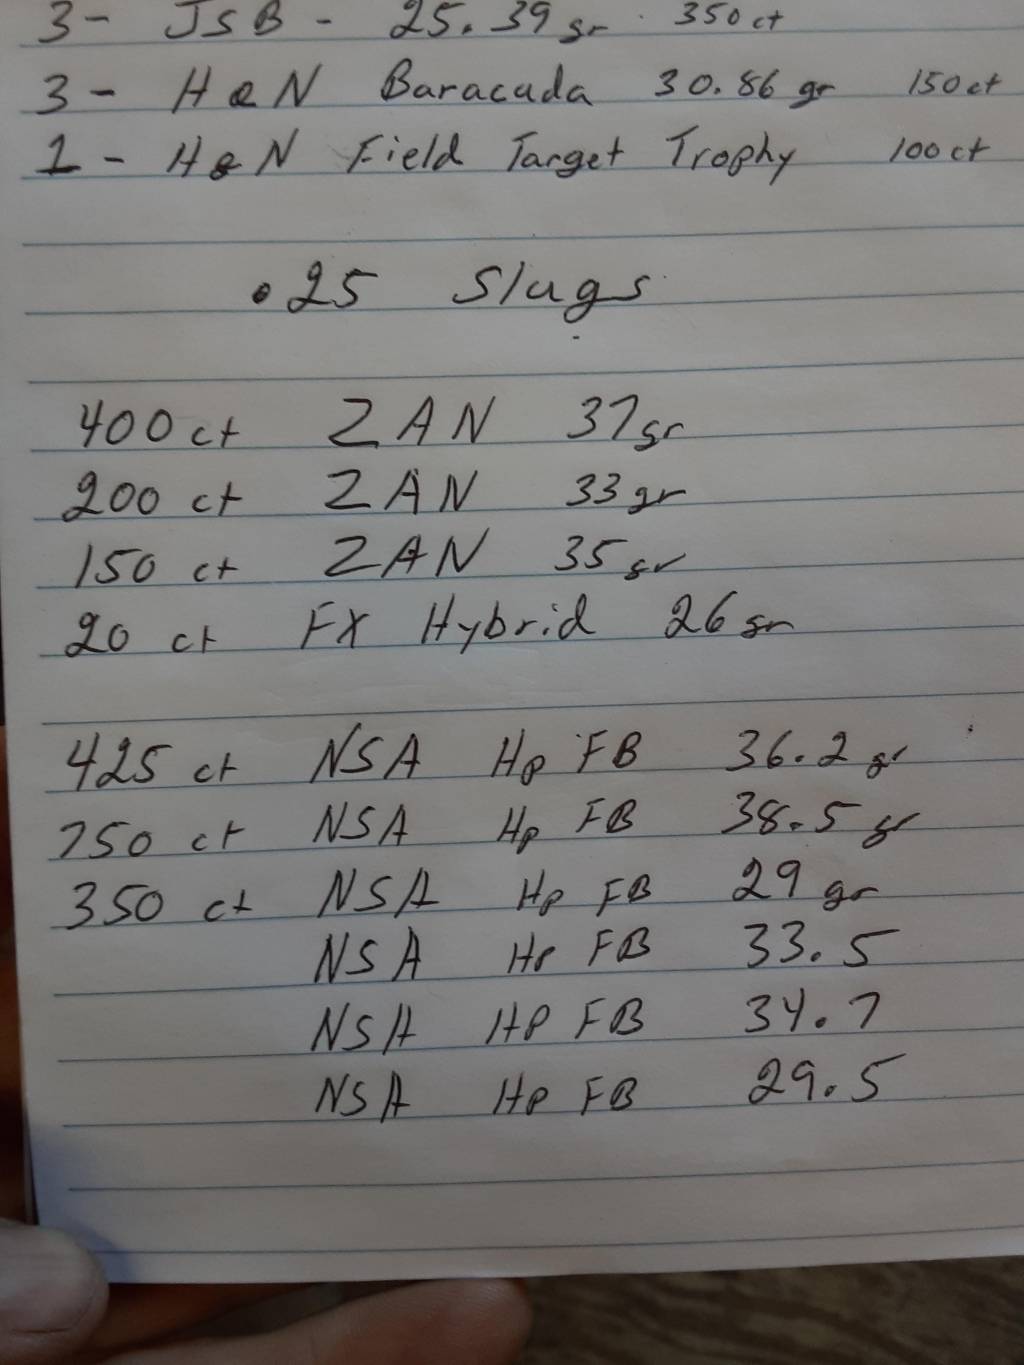 3- JSB - 25.39 gr 350ct
3- H&N Baracuda 30.86 gr 150ct
1- H&N Field Target Trophy 100ct
.25 Slugs
400 ct ZAN 37gr
200 ct ZAN 33gr
150 ct ZAN 35gr
20 ct FX Hybrid 26gr
425 ct NSA Hp FB 36.2 gr
750 ct NSA Hp FB 38.5 gr
350 ct NSA Hp FB 29 gr
NSA Hp FB 33.5
NSA HP FB 34.7
NSA Hp FB 29.5